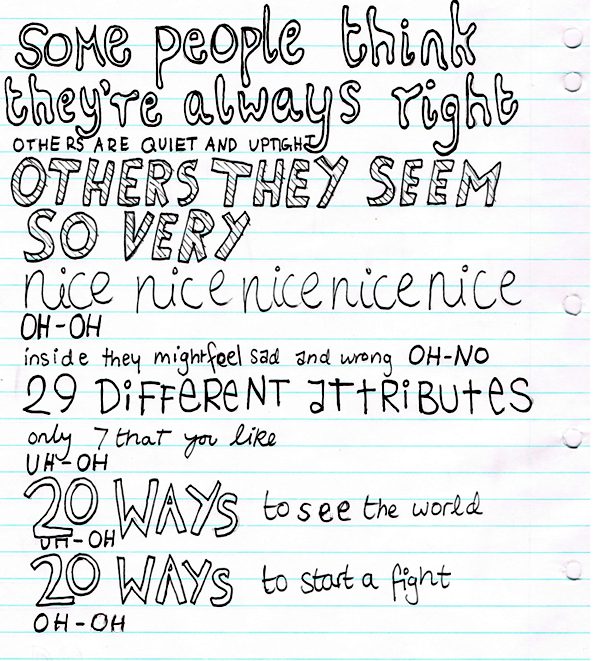 SOME people think
they're always right
OTHERS ARE QUIET AND UPTIGHT
OTHERS THEY SEEM
SO VERY
nice nice nice nice nice
OH-OH
inside they might feel sad and wrong OH-NO
29 DiFFEReNT ATTRiBUteS
only 7 that you like
UH-OH
20 WAYS to see the world
UH-OH
20 WAYS to start a fight
OH-OH